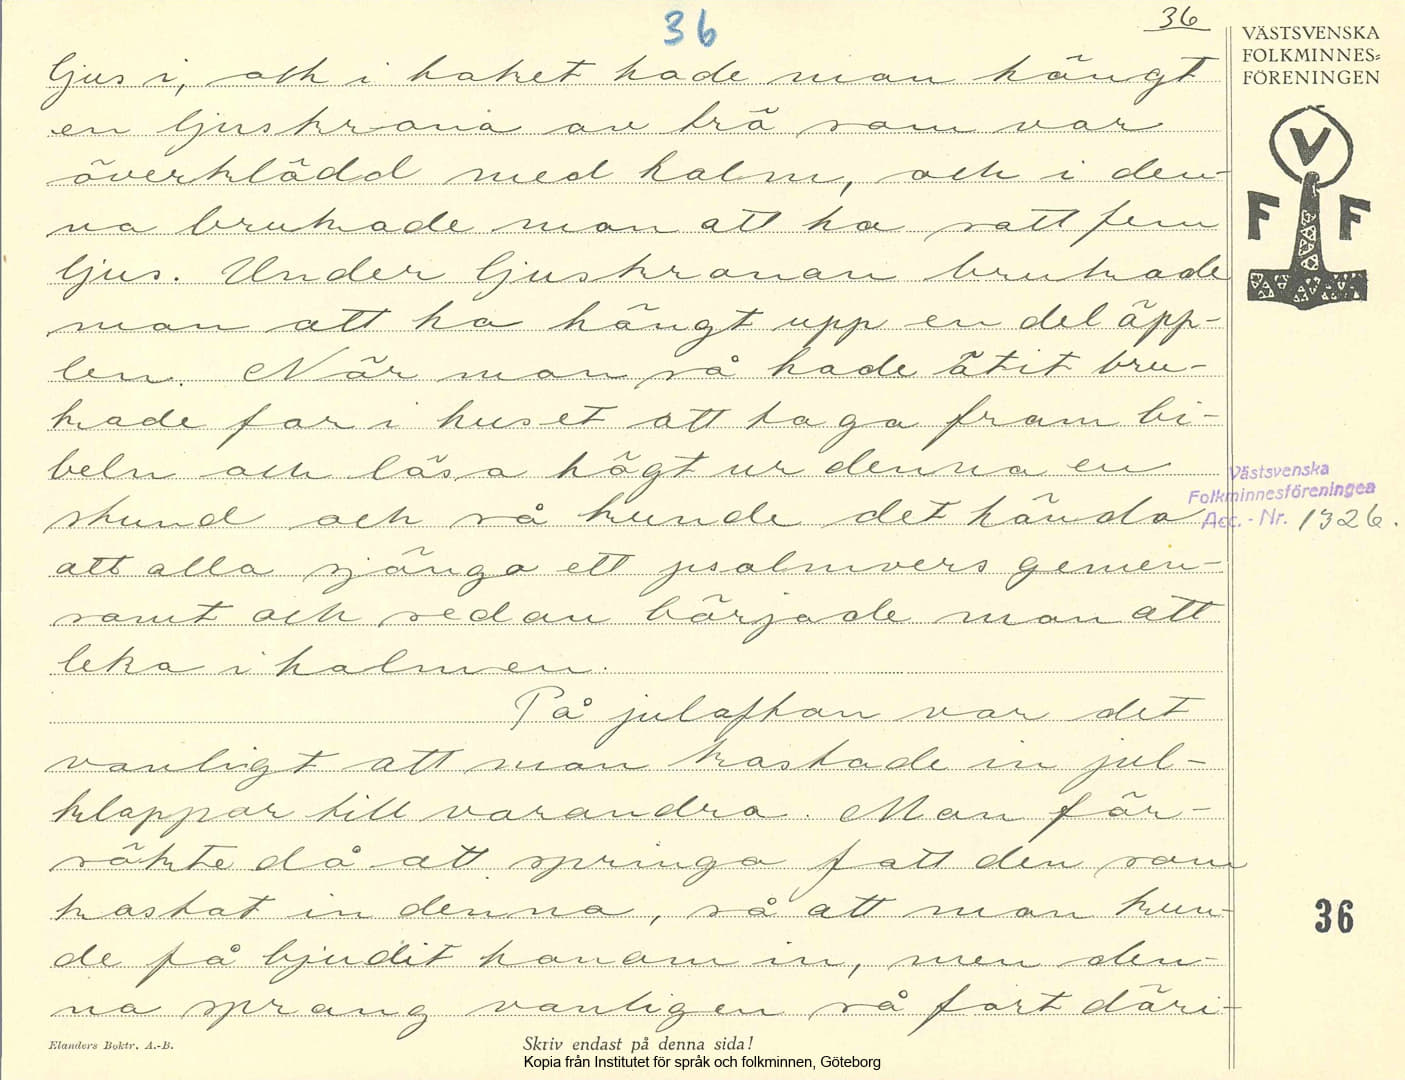 36
36
VÄSTSVENSKA
FOLKMINNES=
FÖRENINGEN
V
F F
ljus i, och i taket hade man hängt
en ljuskrona av trä som var
överklädd med halm, och i den-
na brukade man att ha satt fem
ljus. Under ljuskronan brukade
man att ha hängt upp en del äpp-
len. När man så hade ätit bru-
kade far i huset att taga fram bi-
beln och läsa högt ur denna en
stund och så kunde det hända
att alla sjöngo ett psalmvers gemen-
samt och sedan började man att
leka i halmen.
På julaftan var det
vanligt att man kastade in jul-
klappar till varandra. Man för-
sökte då att springa fatt den som
kastat in denna, så att man kun-
de få bjudit honom in, men den-
na sprang vanligen så fort däri-
Västsvenska
Folkminnesföreningen
Acc. - Nr. 1326.
36
Elanders Boktr. A.-B.
Skriv endast på denna sida!
Kopia från Institutet för språk och folkminnen, Göteborg